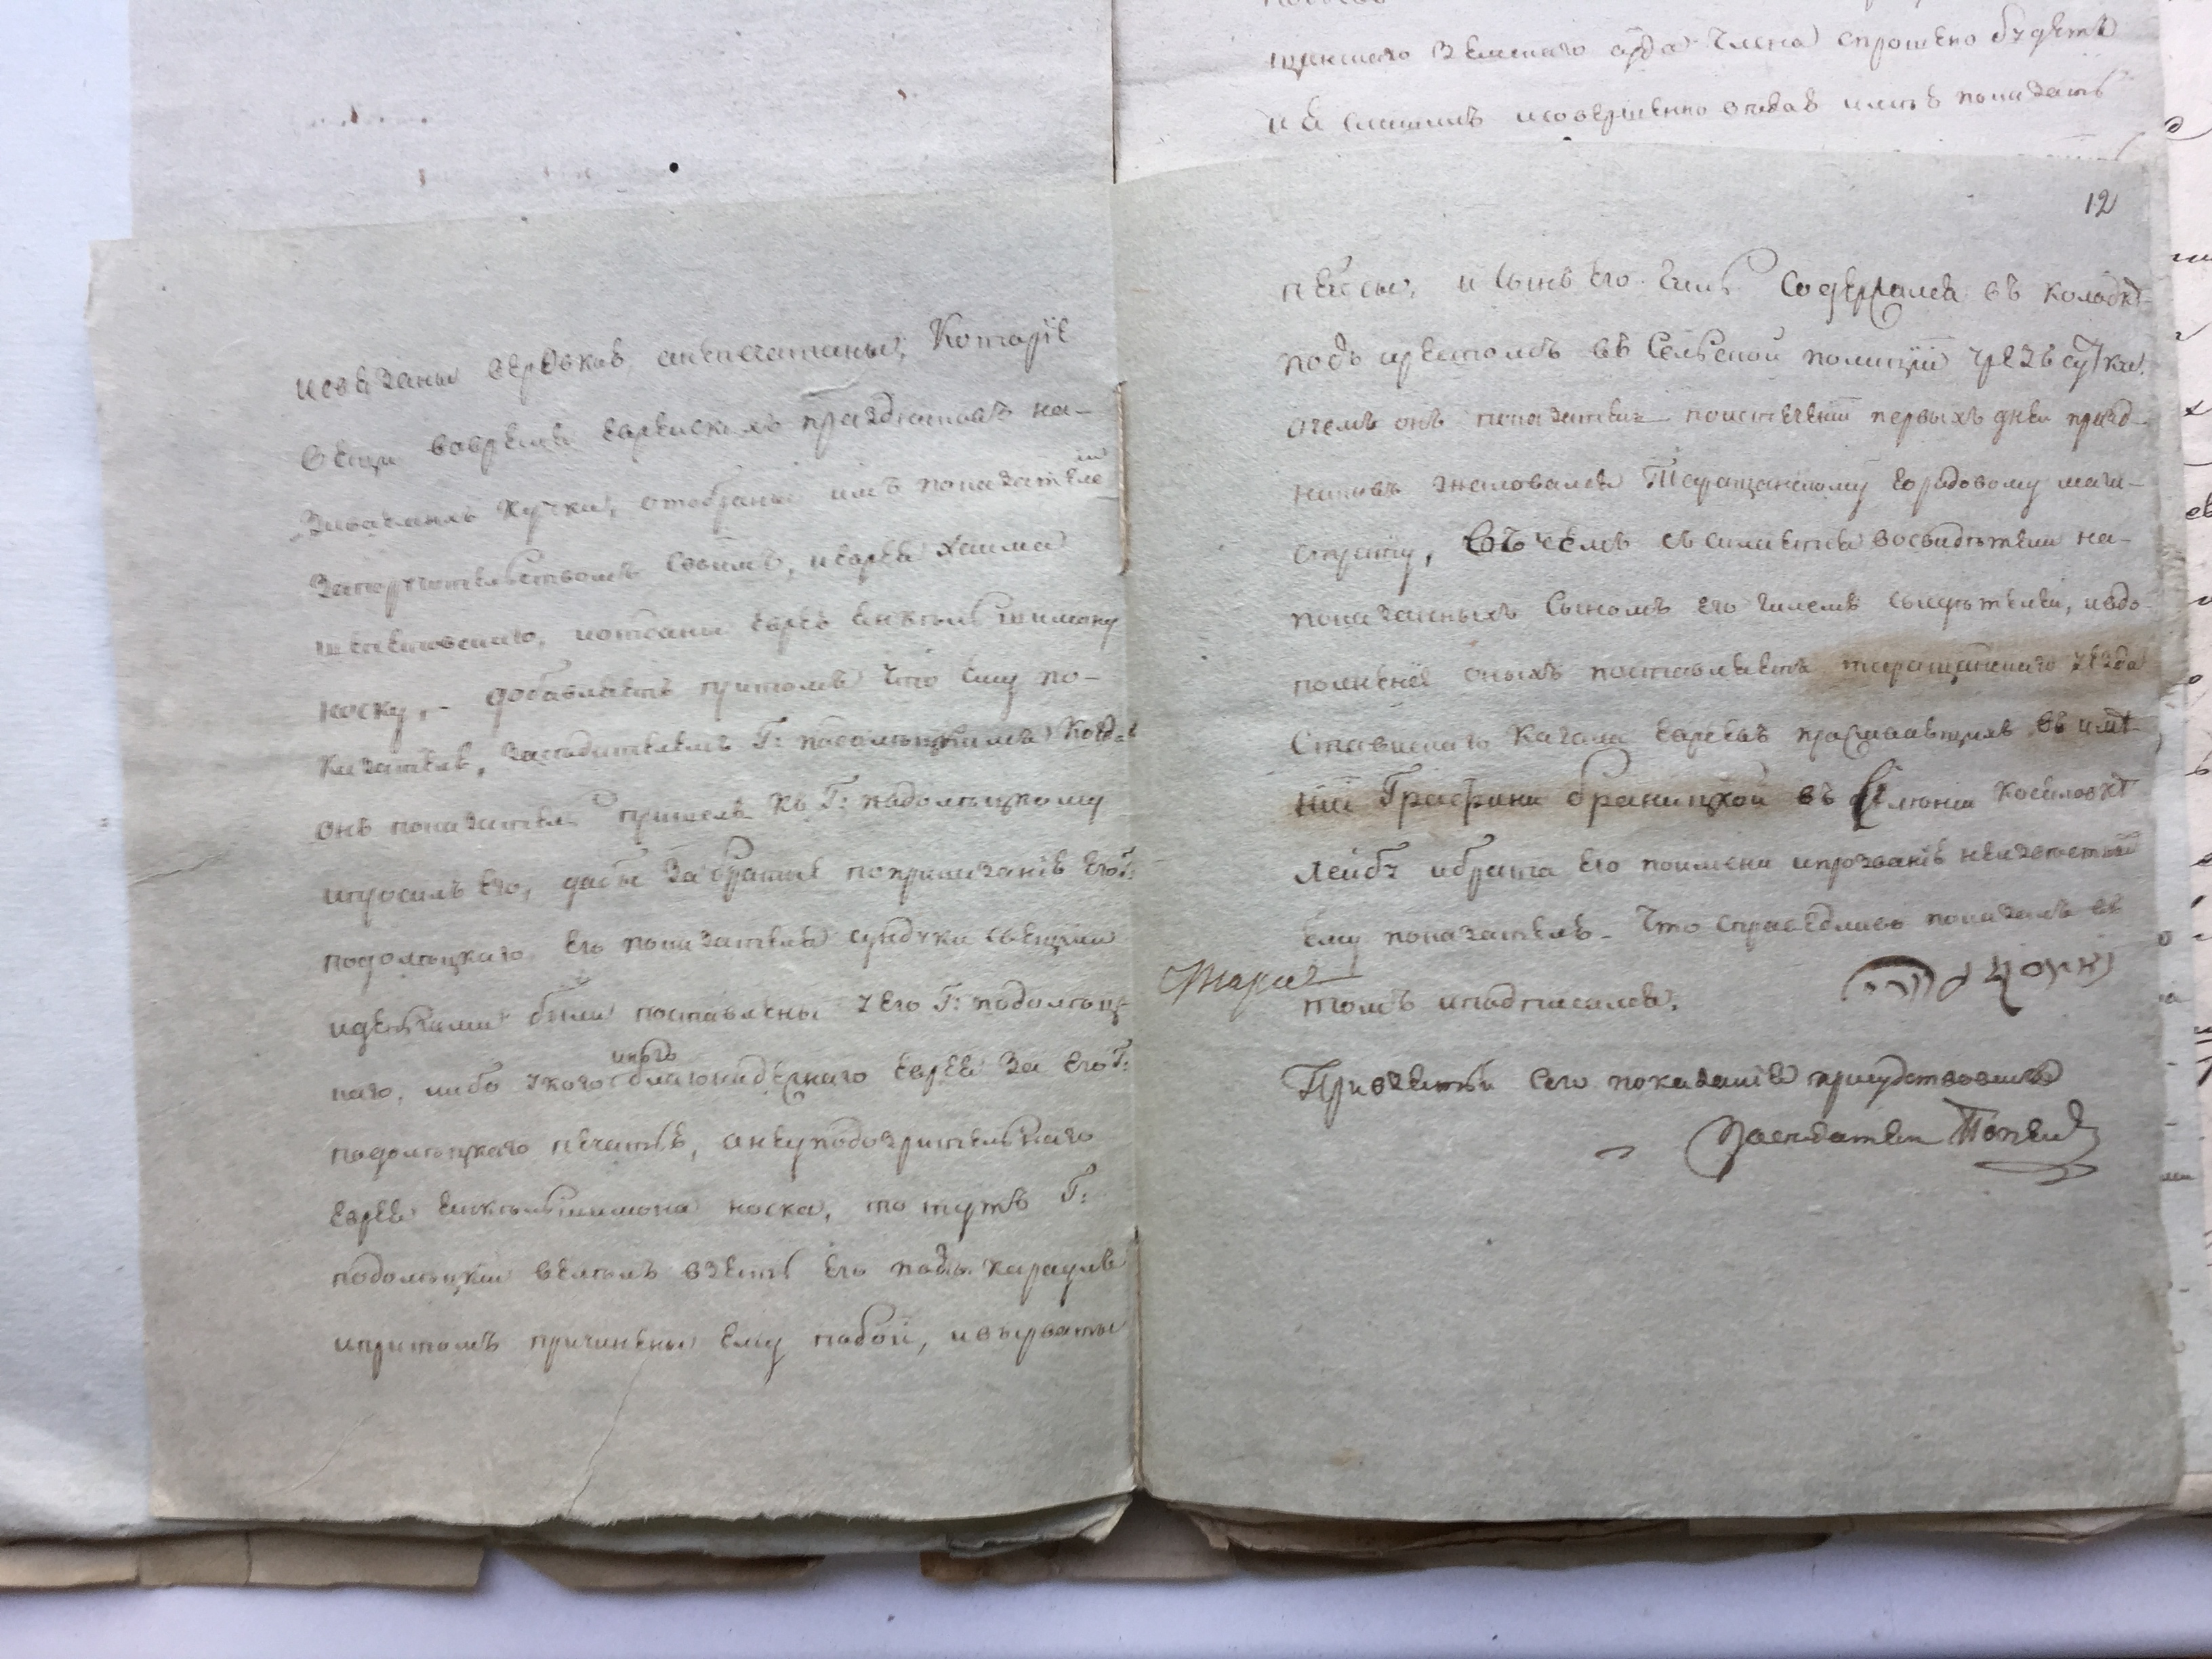 щенного Земскаго суда члена спрошено будетъ
не слышилъ и совершенно
и связаны верювков, анепечатаны, Которїе
вещи вовремя еврейскихъ праздниковъ на-
Кучки, отобраны имъ показателе
м
Запоручительствомъ своимъ, иеврея Хаима
иотданы еврею шимону
носку, - добавляетъ притомъ что ему по-
казателю, Заседателемъ Г: подолецкимъ когда
онъ показатель пришелъ Къ Г: подолецкому
ипросилъ его, дабы Забратые поприказанію его Г:
подолецкаго, его показателя сундуки свещми
иденгами были поставлены у его Г: подолец-
каго, либо укого инаго благонадежнаго еврея За его Г:
подолецкаго печатью, анеуподозрительнаго
еврея шимона носка, то тутъ Г:
подолецкий велелъ взять его подъ караулъ
ипритомъ причинены ему побои, ивырваты
12
пейсы, и сынъ его Гиль Содержался въ колодке
подъ арестомъ въ Сельской полиции чрезъ сутки,
очемъ онъ показатель поистечении первыхъ дней празд-
никовъ жаловался Таращанскому городовому маги-
страту, въ чемъ съсилается восвидетели на-
показанныхъ Сыномъ его Гилемъ свидетелей, ивдо-
полнение оныхъ поставляетъ таращанскаго уезда
Ставискаго Кагала евреевъ проживающихъ въ име-
нии Графини браницкой въ селении Косяковке
Лейбу ибрата его поимени ипрозванию неизвестный
ему показатель. Что справедливо показалъ въ
томъ иподписался.
Привзятии Сего показания присудствовалъ
Заседатель